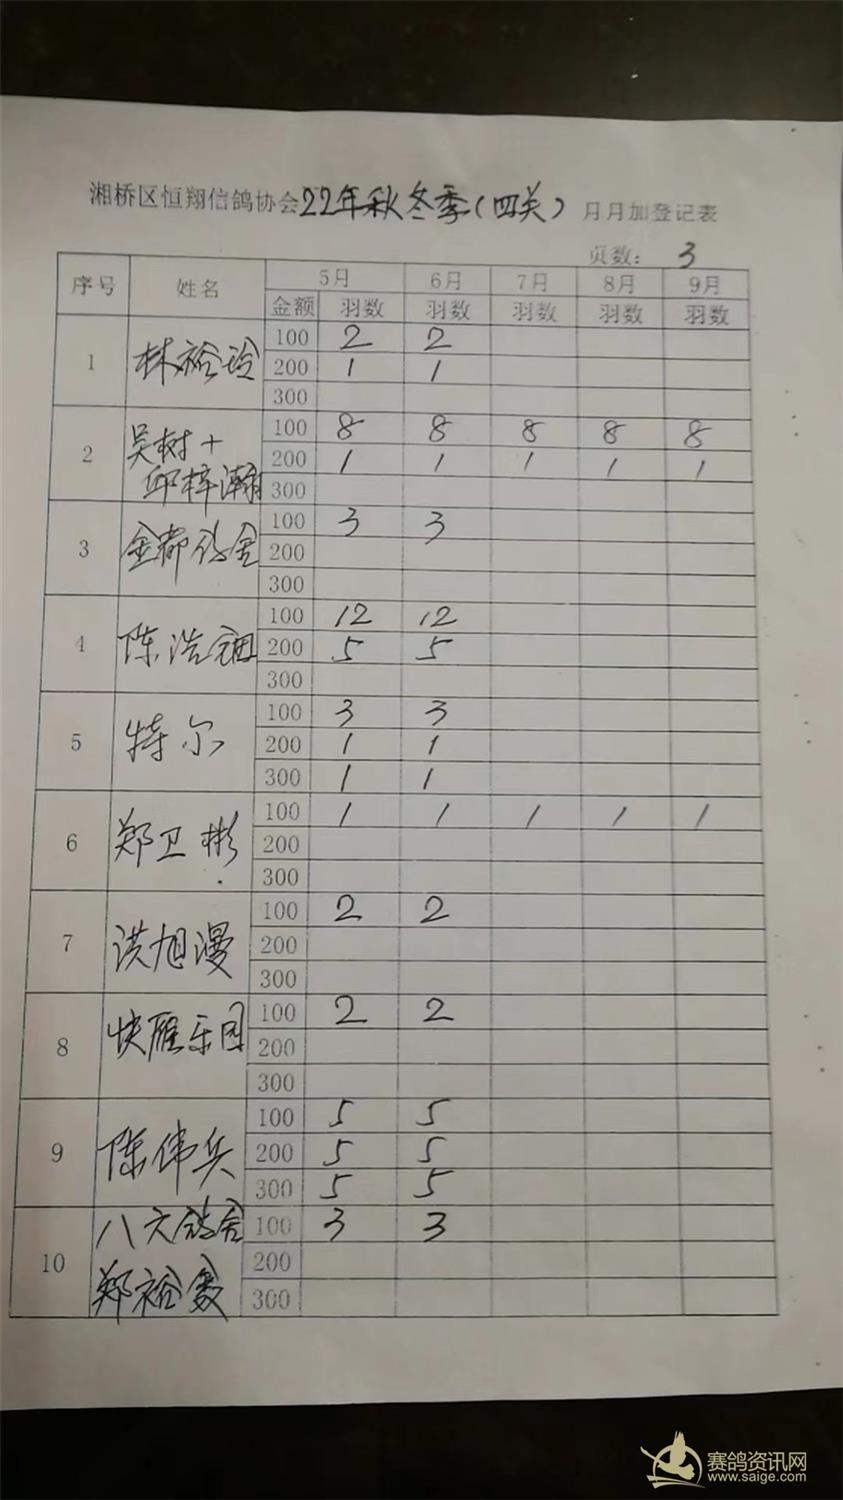 湘桥区恒翔信鸽协会22年秋冬季(四关)月月加登记表
页数: 3
序号 姓名 5月 6月 7月 8月 9月
金额 羽数 羽数 羽数 羽数 羽数
1 林裕玲 100 2 2
200 1 1
300
2 吴树+ 100 8 8 8 8 8
邱梓瀚 200 1 1 1 1 1
300
3 金都鸽舍 100 3 3
200
300
4 陈浩 100 12 12
200 5 5
300
5 特尔 100 3 3
200 1 1
300 1 1
6 郑卫彬 100 1 1 1 1 1
200
300
7 洪旭漫 100 2 2
200
300
8 快雁乐园 100 2 2
200
300
9 陈伟兵 100 5 5
200 5 5
300 5 5
10 八六鸽舍 100 3 3
200
郑裕 300
赛鸽资讯网
www.saige.com